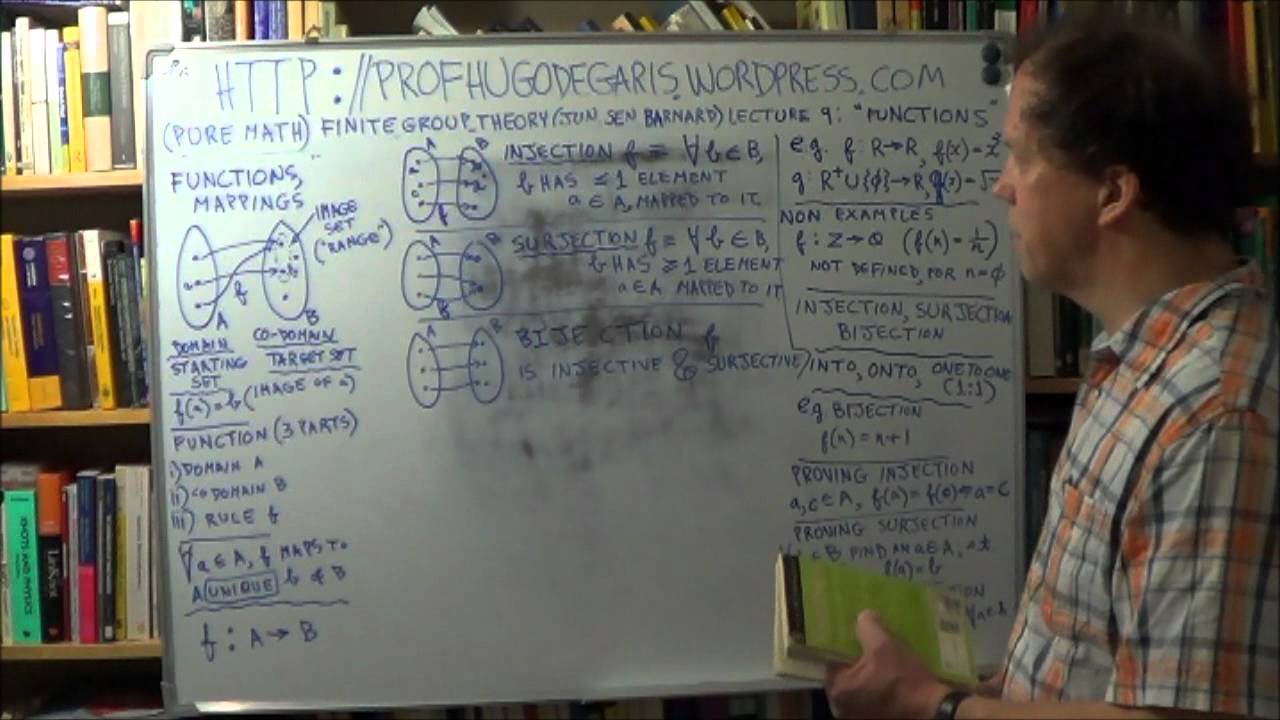 HTTP://PROFHUGODEGARIS.WORDPRESS.COM
(PURE MATH) FINITE GROUP THEORY (JUN SEN BARNARD) LECTURE 9: "FUNCTIONS"
FUNCTIONS,
MAPPINGS
IMAGE
SET
("RANGE")
f
A
B
DOMAIN
STARTING
SET
CO-DOMAIN
TARGET SET
f(a)=b (IMAGE OF a)
FUNCTION (3 PARTS)
i) DOMAIN A
ii) CODOMAIN B
iii) RULE f
∀a∈A, f MAPS TO
A UNIQUE b ∈ B
f : A → B
A
B
f
INJECTION f ≡ ∀b∈B,
b HAS ≤ 1 ELEMENT
a ∈ A, MAPPED TO IT
A
B
SURJECTION f ≡ ∀b∈B,
b HAS ≥ 1 ELEMENT
a∈A MAPPED TO IT
A
B
BIJECTION f
IS INJECTIVE & SURJECTIVE
e.g. f: R→R, f(x)=
g: R⁺∪{ϕ}→R,
NON EXAMPLES
f: Z→Q (f(n)=1/n)
NOT DEFINED, FOR n=ϕ
INJECTION, SURJECTION
BIJECTION
INTO, ONTO, ONE TO ONE
(1:1)
e.g BIJECTION
f(n) = n+1
PROVING INJECTION
PROVING SURJECTION
B FIND AN a∈A,
f(a)=b
KNOTS AND PHYSICS